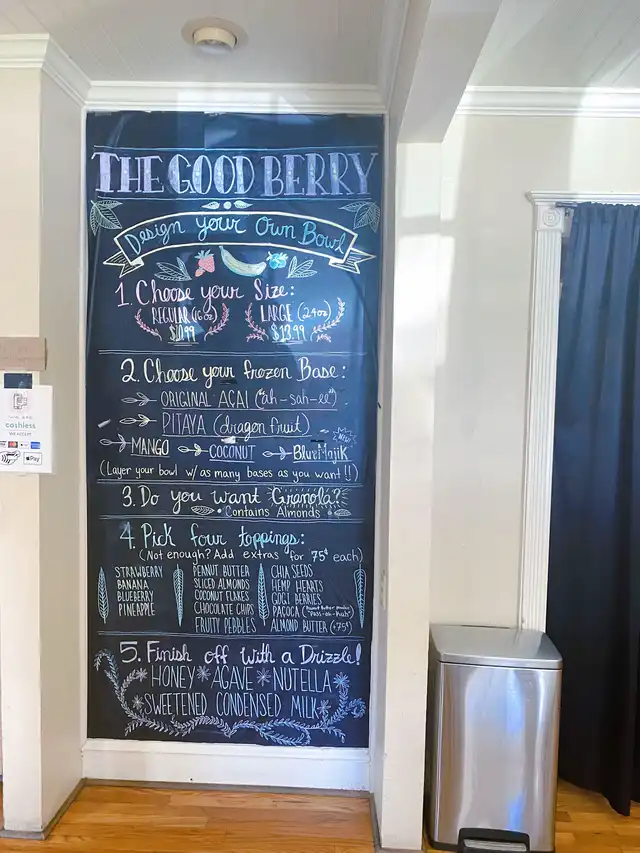 THE GOOD BERRY
Design your Own Bowl
1. Choose your Size:
REGULAR (16oz) LARGE (24oz)
$10.99 $13.99
2. Choose your frozen Base:
ORIGINAL AÇAI ("ah-sah-ee")
PITAYA (dragon fruit)
NEW
MANGO COCONUT Blue Majik
(Layer your bowl w/ as many bases as you want!!)
3. Do you want Granola?
• Contains Almonds •
4. Pick four toppings:
(Not enough? Add extras for 75¢ each)
STRAWBERRY
BANANA
BLUEBERRY
PINEAPPLE
PEANUT BUTTER
SLICED ALMONDS
COCONUT FLAKES
CHOCOLATE CHIPS
FRUITY PEBBLES
CHIA SEEDS
HEMP HEARTS
GOGI BERRIES
PAÇOCA
ALMOND BUTTER (+75¢)
5. Finish off with a Drizzle!
HONEY * AGAVE * NUTELLA *
SWEETENED CONDENSED MILK
WE ARE
cashless
Pay